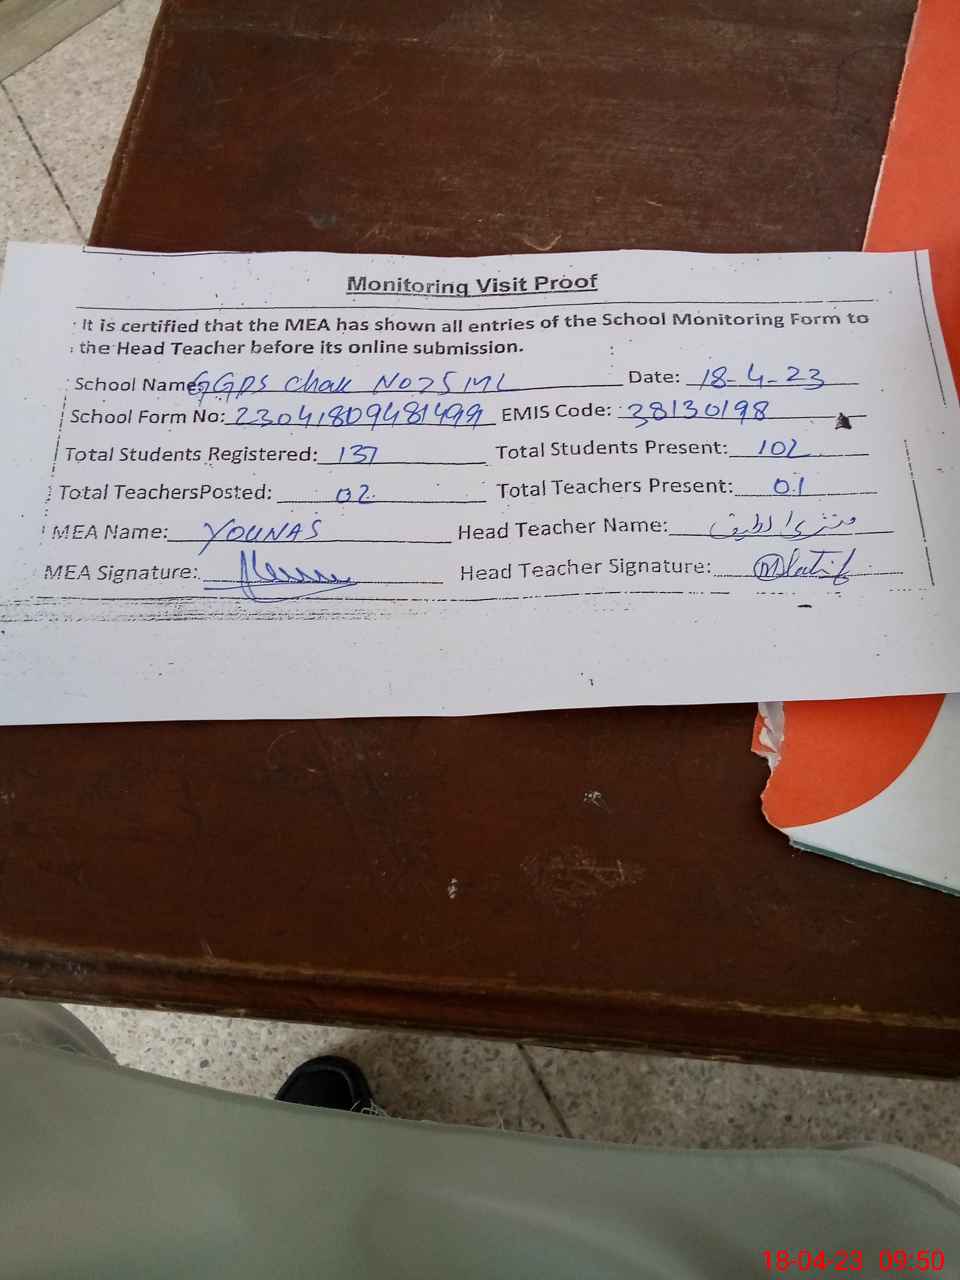 Monitoring Visit Proof
It is certified that the MEA has shown all entries of the School Monitoring Form to
the Head Teacher before its online submission.
School Name: GGPS Chak No 75 ML Date: 18-4-23
School Form No: 23041809481499 EMIS Code: 38130198
Total Students Registered: 137 Total Students Present: 102
Total TeachersPosted: 02 Total Teachers Present: 01
MEA Name: YOUNAS Head Teacher Name: لطیف
MEA Signature: Head Teacher Signature: MLatif
18-04-23 09:50